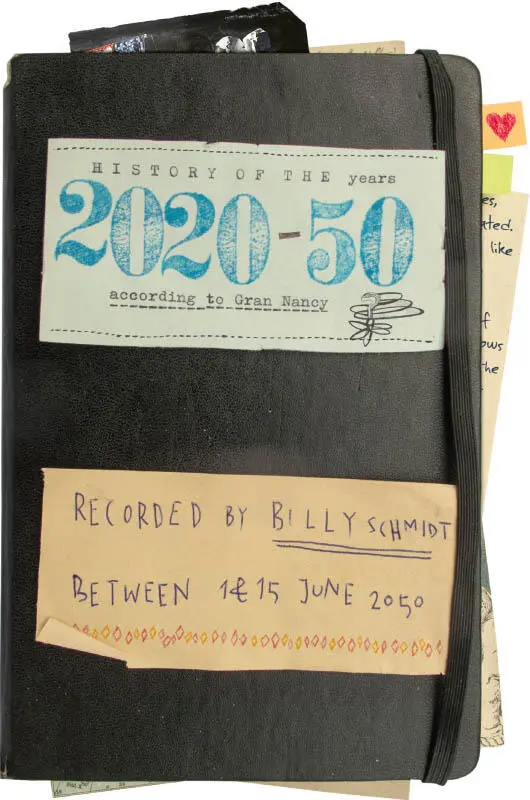 HISTORY OF THE years
2020-50
according to Gran Nancy
RECORDED BY BILLY SCHMIDT
BETWEEN 1 & 15 JUNE 2050
es,
ated.
like
f
ows
the